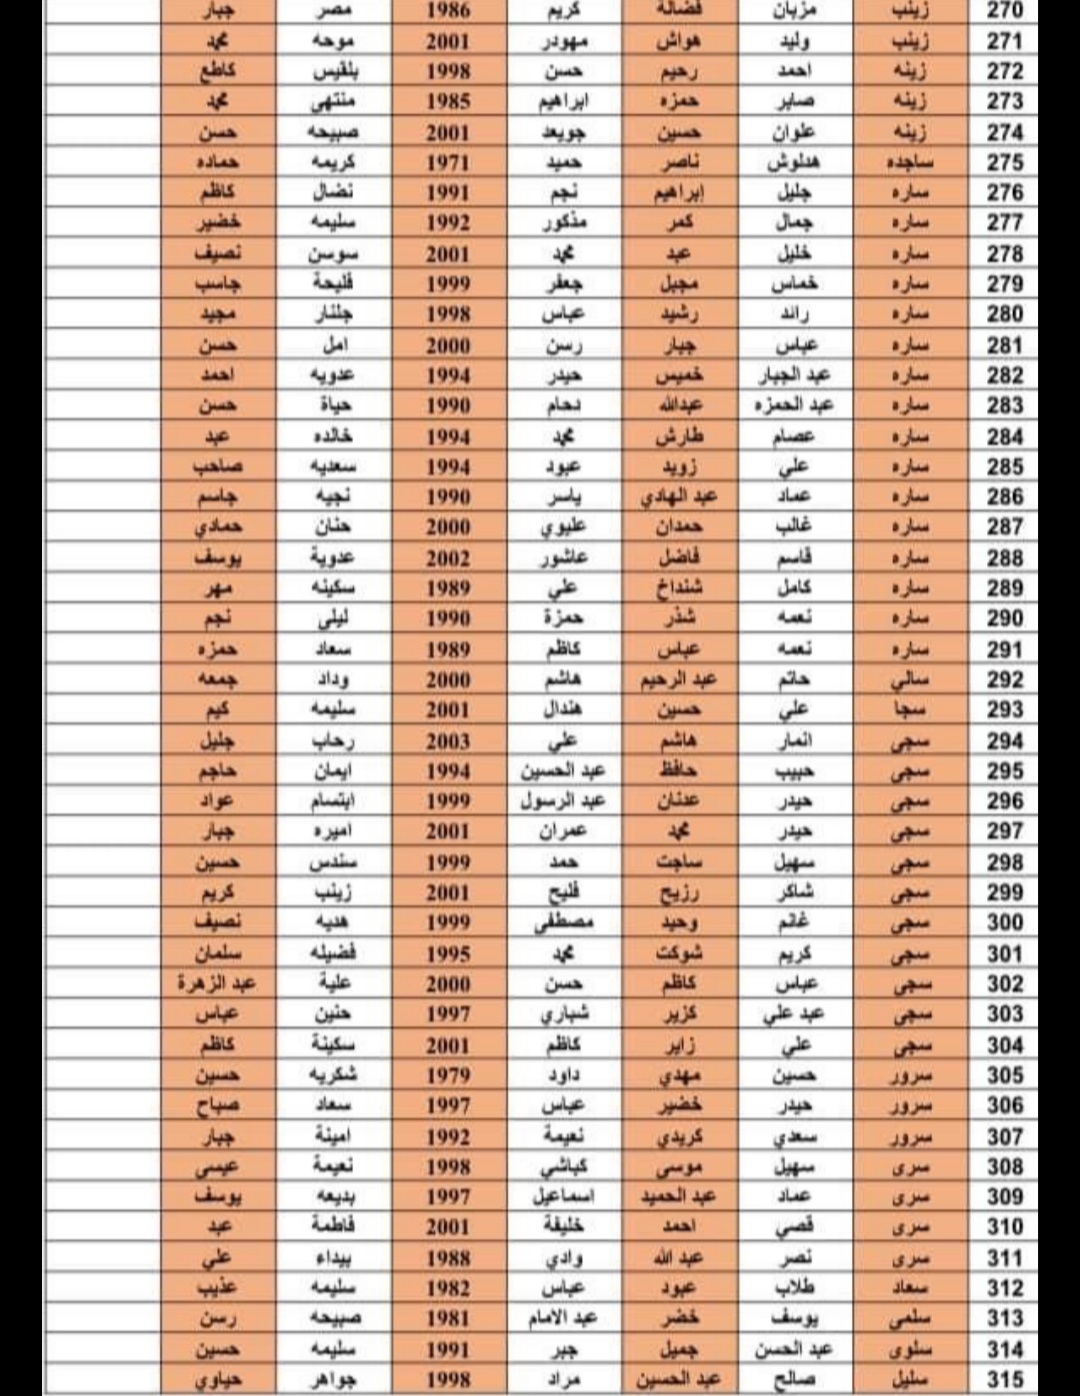 270 زينب مزبان فضالة كريم 1986 مصر جبار
271 زينب وليد هواش مهودر 2001 موحه محمد
272 زينه احمد رحيم حسن 1998 بلقيس كاطع
273 زينه صابر حمزه ابراهيم 1985 منتهى محمد
274 زينه علوان حسين جويعد 2001 صبيحه حسن
275 ساجده هدلوش ناصر حميد 1971 كريمه حماده
276 ساره جليل إبراهيم نجم 1991 نضال كاظم
277 ساره جمال كمر مذكور 1992 سليمه خضير
278 ساره خليل عبد محمد 2001 سوسن نصيف
279 ساره خماس مجبل جعفر 1999 فليحة جاسب
280 ساره رائد رشيد عباس 1998 جلنار مجيد
281 ساره عباس جبار رسن 2000 امل حسن
282 ساره عبد الجبار خميس حيدر 1994 عدويه احمد
283 ساره عبد الحمزه عبدالله دحام 1990 حياة حسن
284 ساره عصام طارش محمد 1994 خالده عبد
285 ساره علي زويد عبود 1994 سعديه صاحب
286 ساره عماد عبد الهادي ياسر 1990 نجيه جاسم
287 ساره غالب حمدان عليوي 2000 حنان حمادي
288 ساره قاسم فاضل عاشور 2002 عدوية يوسف
289 ساره كامل شنداخ علي 1989 سكينه مهر
290 ساره نعمه شذر حمزة 1990 ليلى نجم
291 ساره نعمه عباس كاظم 1989 سعاد حمزه
292 سالي حاتم عبد الرحيم هاشم 2000 وداد جمعه
293 سجا علي حسين هندال 2001 سليمه كيم
294 سجى انمار هاشم علي 2003 رحاب جليل
295 سجى حبيب حافظ عبد الحسين 1994 ايمان حاجم
296 سجى حيدر عدنان عبد الرسول 1999 ابتسام عواد
297 سجى حيدر محمد عمران 2001 اميره جبار
298 سجى سهيل ساجت حمد 1999 سندس حسين
299 سجى شاكر رزيج فليح 2001 زينب كريم
300 سجى غانم وحيد مصطفى 1999 هديه نصيف
301 سجى كريم شوكت محمد 1995 فضيله سلمان
302 سجى عباس كاظم حسن 2000 علية عبد الزهرة
303 سجى عبد علي كزير شباري 1997 حنين عباس
304 سجى علي زاير كاظم 2001 سكينة كاظم
305 سرور حسين مهدي داود 1979 شكريه حسين
306 سرور حيدر خضير عباس 1997 سعاد صباح
307 سرور سعدي كريدي نعيمة 1992 امينة جبار
308 سرى سهيل موسى كباشي 1998 نعيمة عيسى
309 سرى عماد عبد الحميد اسماعيل 1997 بديعه يوسف
310 سرى قصي احمد خليفة 2001 فاطمة عبد
311 سرى نصر عبد الله وادي 1988 بيداء علي
312 سعاد طلاب عبود عباس 1982 سليمه عذيب
313 سلمى يوسف خضر عبد الامام 1981 صبيحه رسن
314 سلوى عبد الحسن جميل جبر 1991 سليمه حسين
315 سليل صالح عبد الحسين مراد 1998 جواهر حياوي